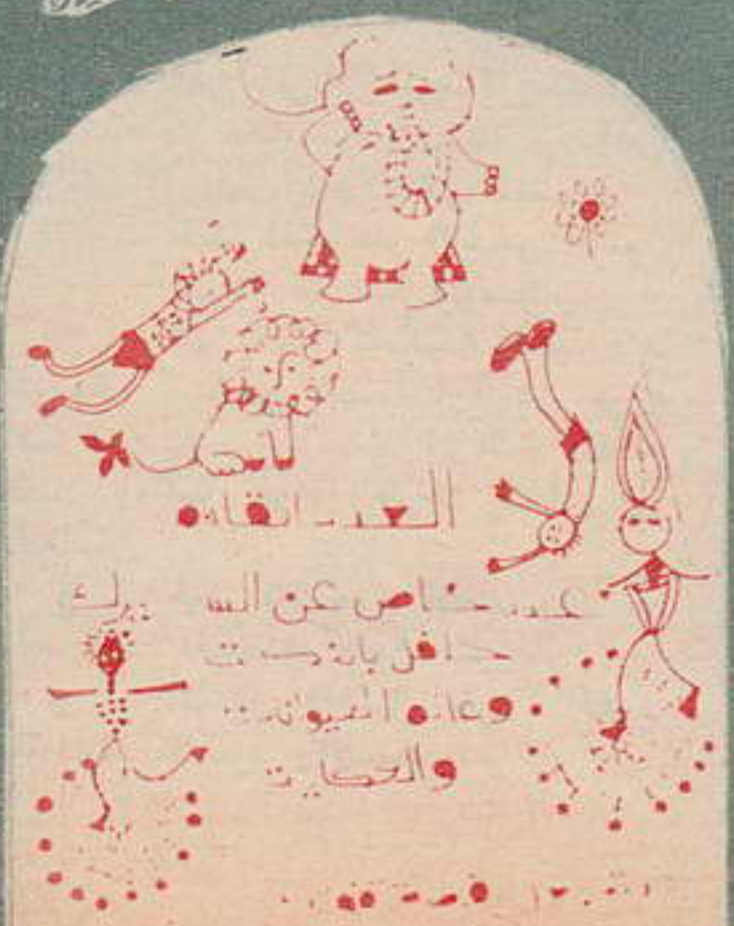 العدد القادم
عدد خاص عن السيرك
حافل بالمدهشات
وعالم الحيوانات
والحكايات